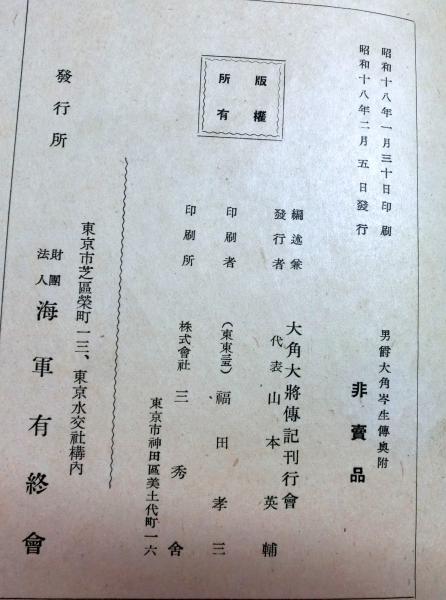 昭和十八年一月三十日印刷
昭和十八年二月五日發行
男爵大角岑生傳奧附
非賣品
版權
所有
編述兼
發行者
大角大將傳記刊行會
代表山本英輔
印刷者
福田孝三
印刷所
株式會社三秀舍
東京市神田區美土代町一六
發行所
東京市芝區榮町一三、東京水交社構內
財團
法人
海軍有終會